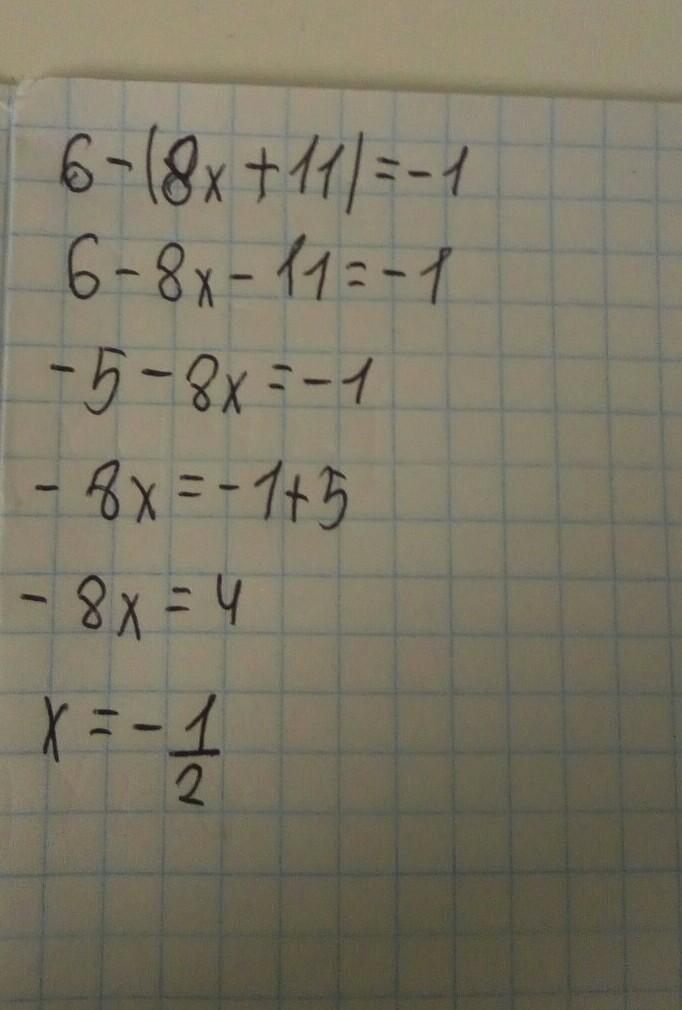 6-(8x+11)=-1
6-8x-11=-1
-5-8x=-1
-8x=-1+5
-8x=4
x=-1/2